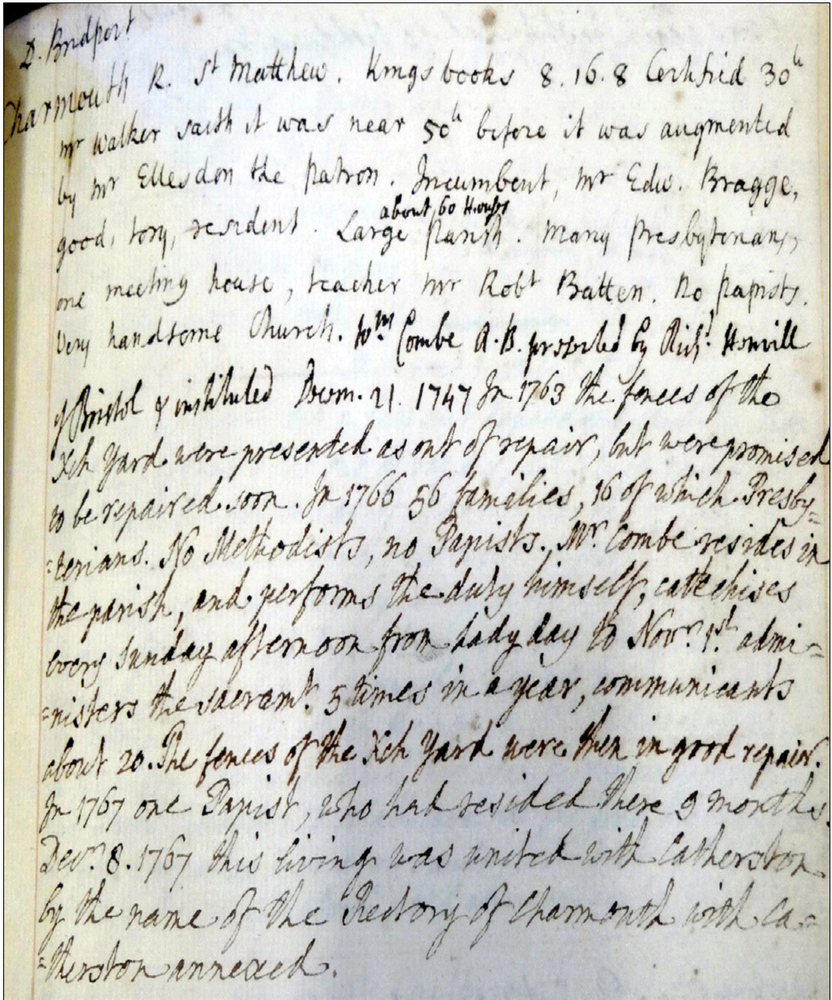 D. Bridport
Charmouth R. St Matthew. Kings books 8.16.8 Certified 30ll
mr Walker saith it was near 50ll before it was augmented
by mr Ellesdon the patron. Incumbent, mr Edw. Bragge,
good, tory, resident. Large parish. many presbyterians,
about 60 Houses
one meeting house, teacher mr Robt Batten. No papists.
Very handsome Church. Wm Combe A.B. presented by Richd
of Bristol & instituted Decem. 21. 1747 In 1763 the fences of the
Xch Yard were presented as out of repair, but were promised
to be repaired soon. In 1766 56 families, 16 of which Presby=
=terians. No Methodists, no Papists. Mr. Combe resides in
the parish, and performs the duty himself, catechises
every Sunday afternoon from Lady day to Novr. 1st. admi=
=nisters the sacramt. 5 times in a year, communicants
about 20. The fences of the Xch Yard were then in good repair.
In 1767 one Papist, who had resided there 9 months.
Decr. 8. 1767 this living was united with Catherston
by the name of the Rectory of Charmouth with Ca=
=therston annexed.